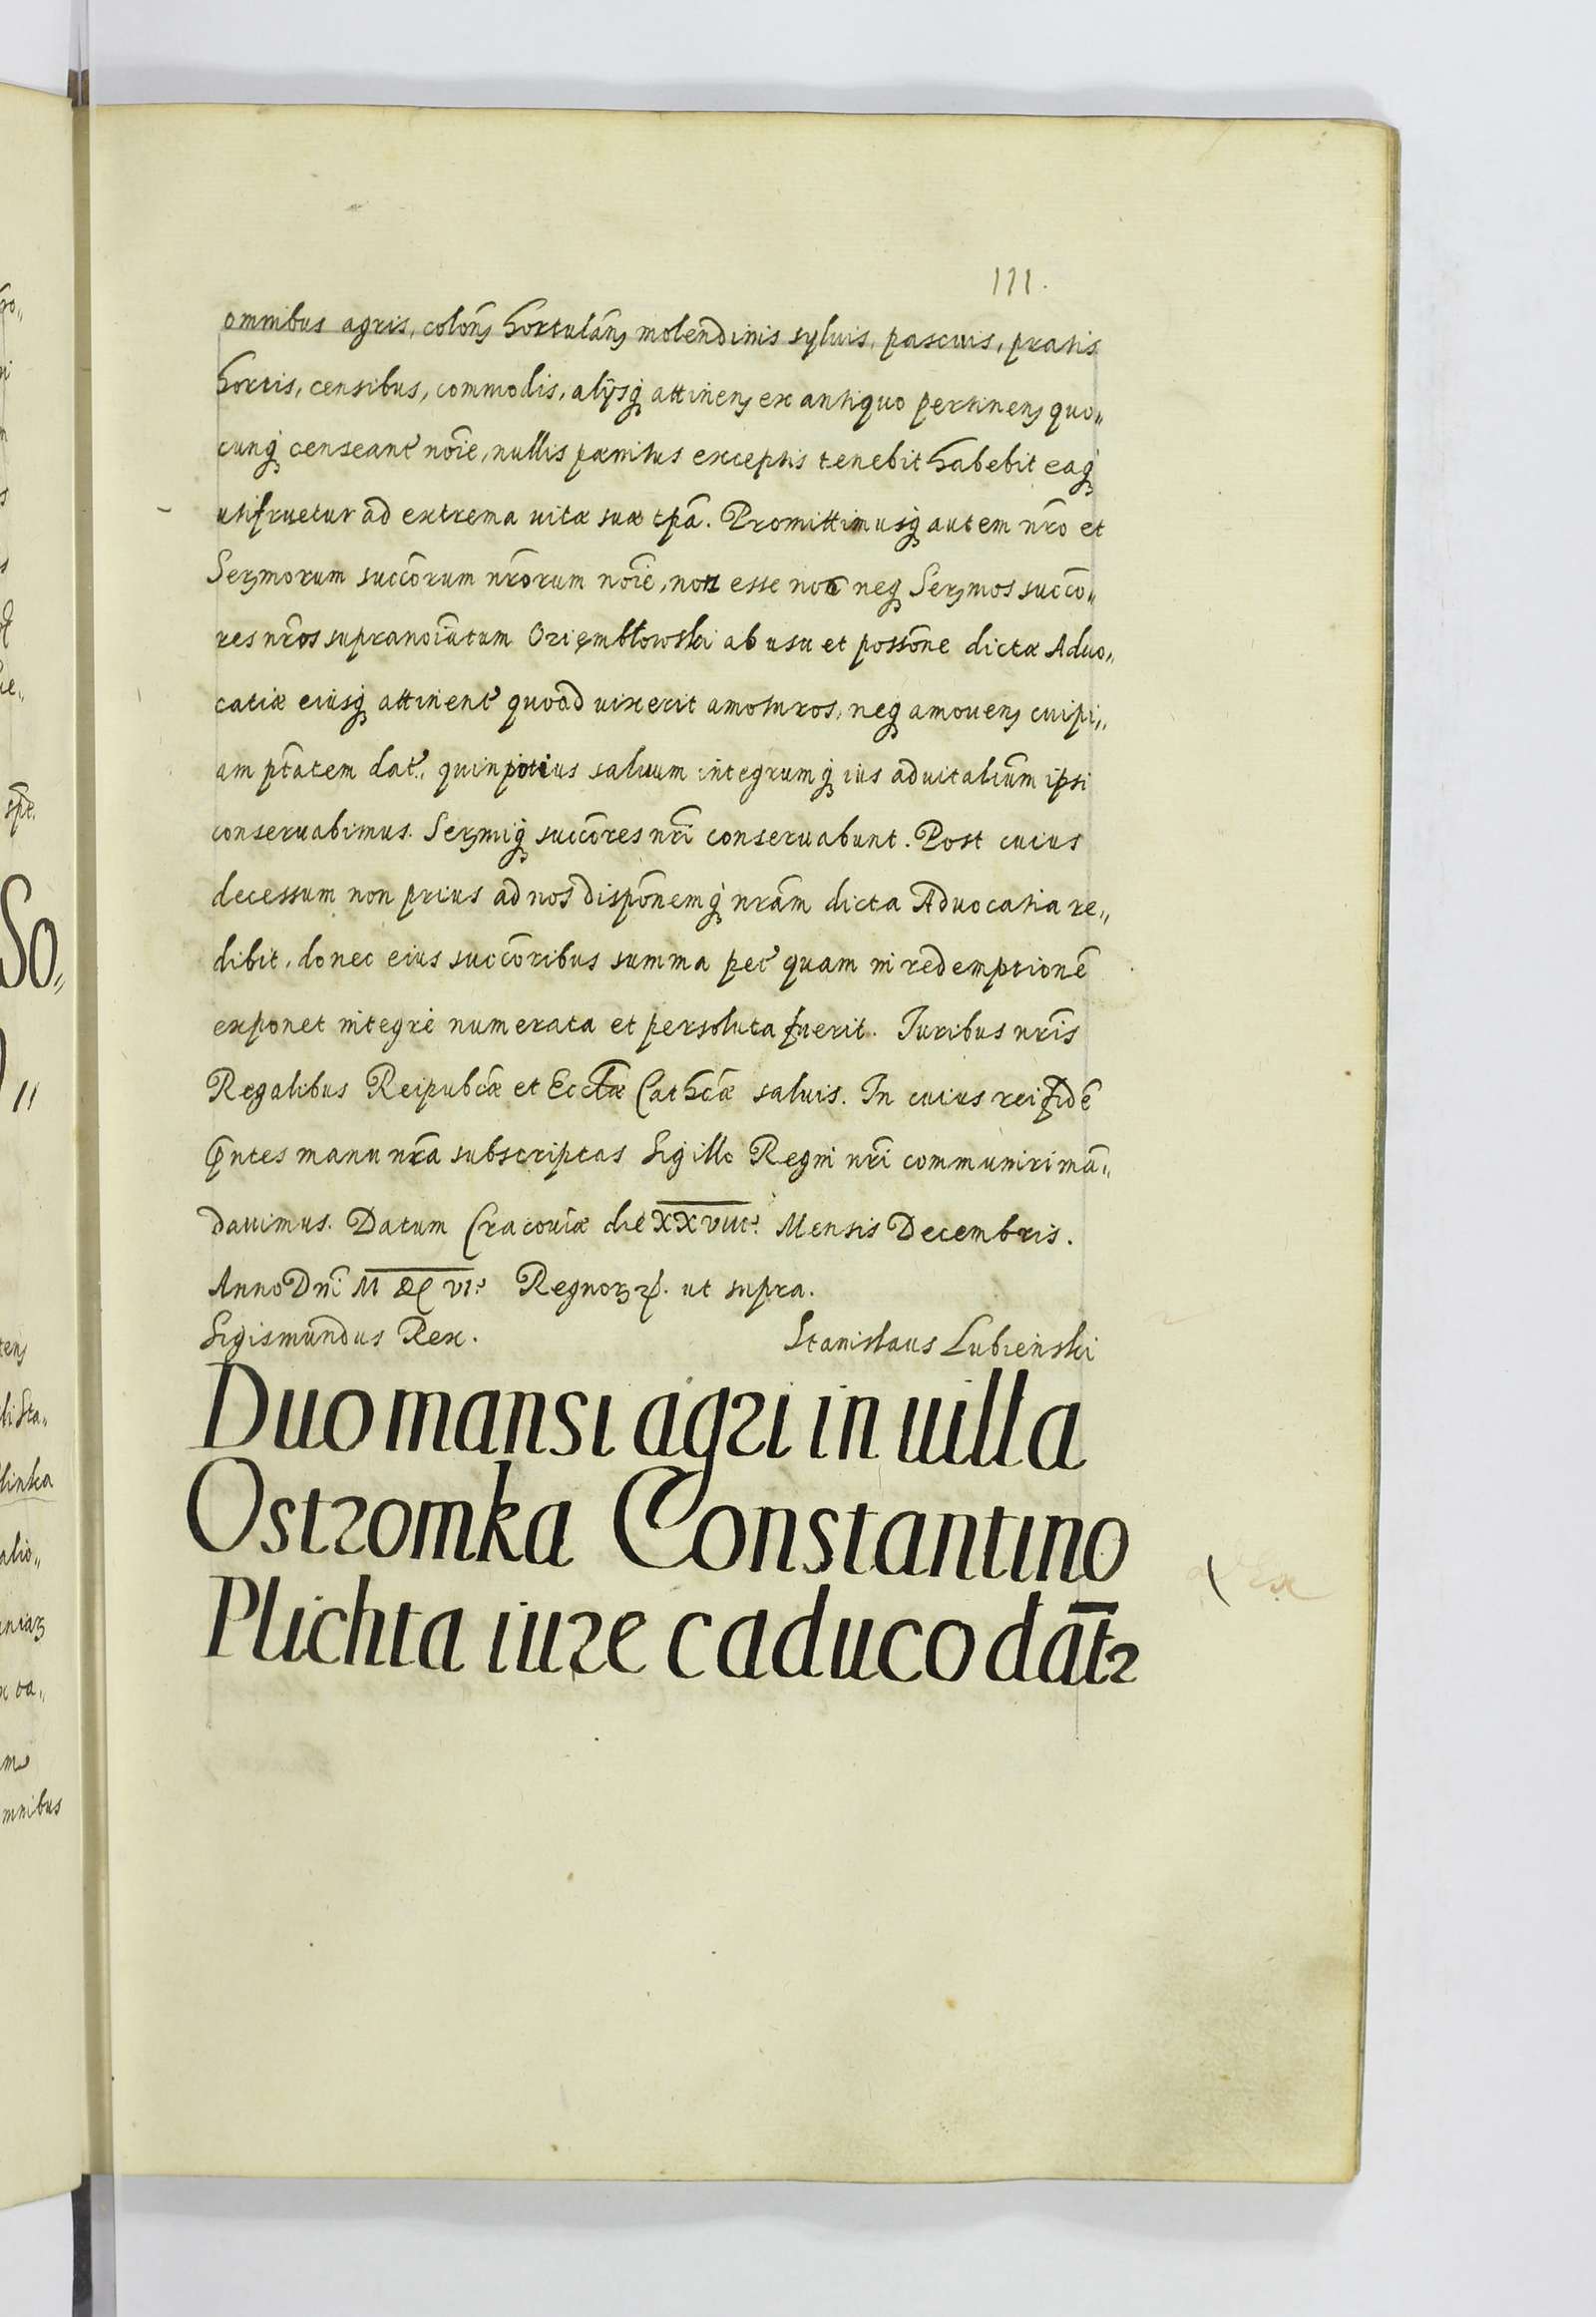 111.
omnibus agris, colonȝ hortulanȝ molendinis syluis, pascuis, pratis
hortis, censibus, commodis, alijsq̃ attinenȝ ex antiquo pertinenȝ quo„
cunq̃ censeant᷑ noĩe, nullis pænitus exceptis tenebit habebit eaq̃
utifruetur ad extrema uitæ suæ tpã. Promittimusq̃ autem nr̃o et
Serȝmorum succõrum nr̃orum noĩe, non esse nos neq̃ Serȝmos succõ„
res nr̃os supranoiãtum Oziembłowski ab usu et possõne dictæ Aduo„
catiæ eiusq̃ attinent᷑ quoad uixerit amoturos, neq̃ amouenȝ cuipi„
am ptãtem dat᷑., quin potius saluum integrumq̃ ius aduitaliũm ipsi
conseruabimus. Serȝmiq̃ succõres nr̃i conseruabunt. Post cuius
decessum non prius ad nos dispõnemq̃ nr̃am dicta Aduocatia re„
dibit, donec eius succõribus summa pec᷑ quam in redemptionẽ
exponet integrè numerata et persoluta fuerit. Iuribus nr̃is
Regalibus Reipubcæ̃ et Ecclæ̃ Cathcæ̃ saluis. In cuius rei fidẽ
Pñtes manu nr̃a subscriptas Sigillo Regni nr̃i communiri mã„
dauimus. Datum Cracouiæ die XXVIII᷑ Mensis Decembris.
Anno Dnĩ M DC VI᷑ Regnorȝ ꝛc. ut supra.
Sigismundus Rex. Stanislaus Lubienski
Duo mansi agri in uilla
Ostromka Constantino
Plichta iure caduco dãtr